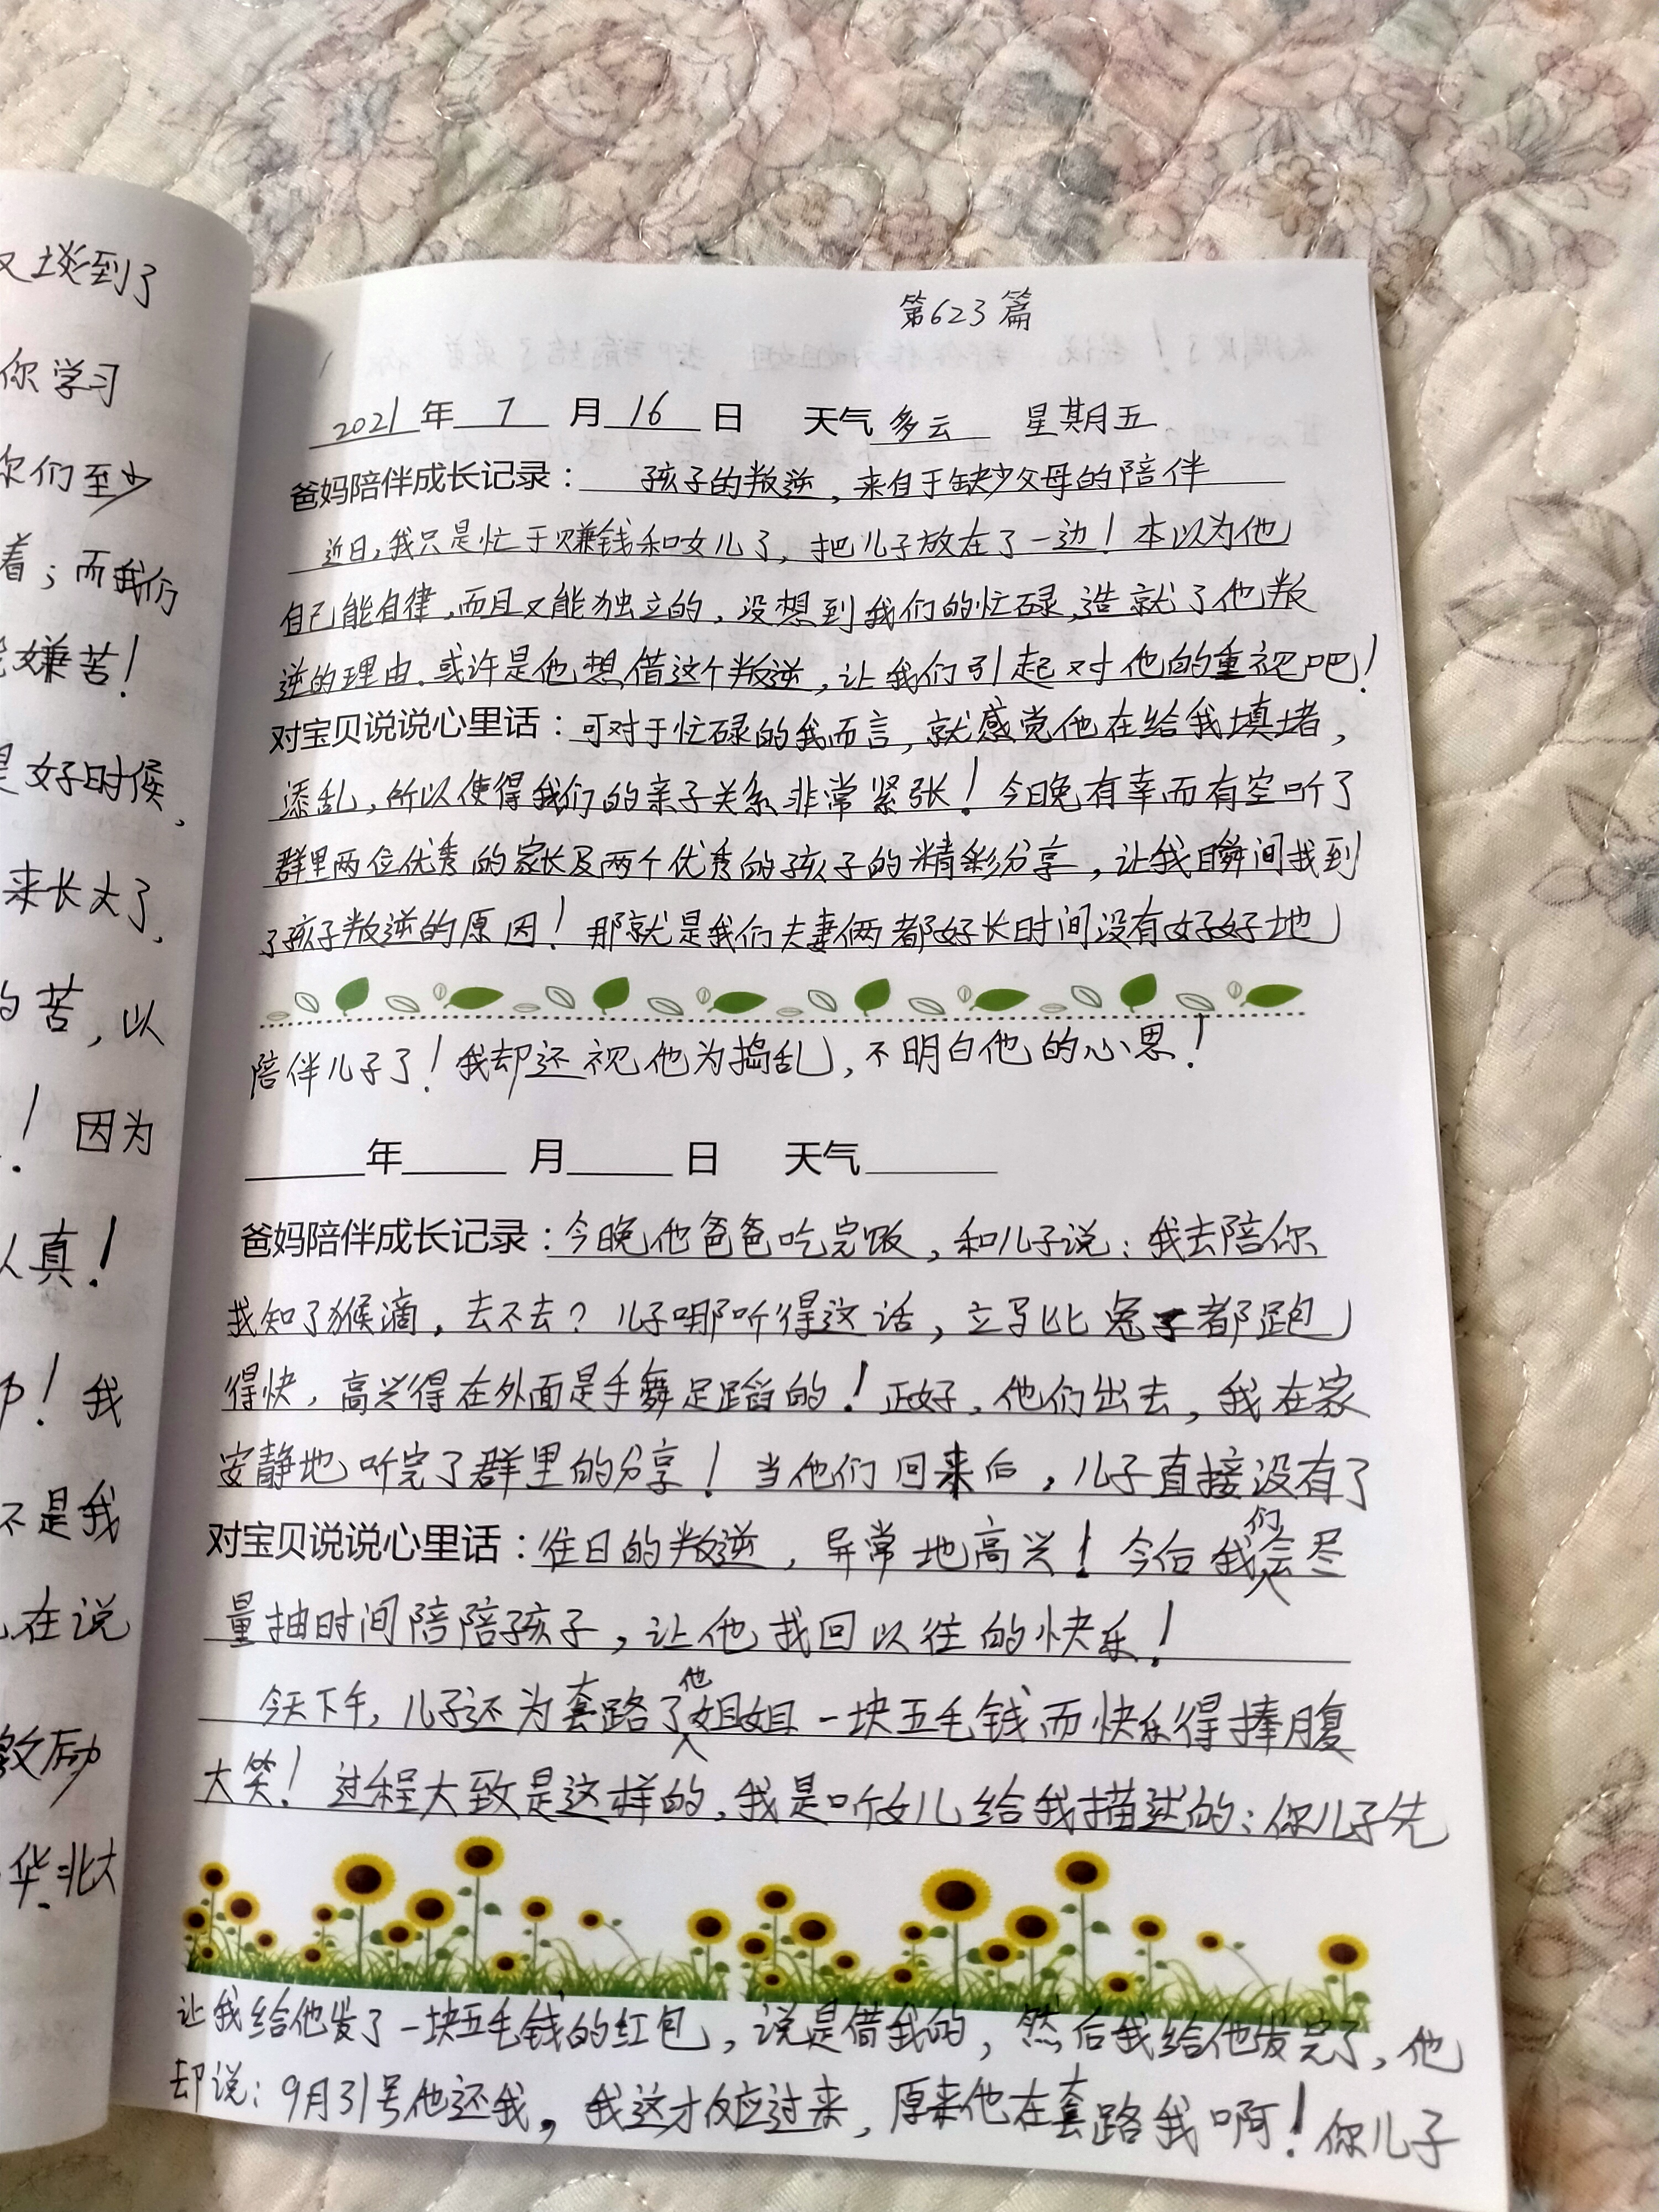 又谈到了
你学习
你们至少
着；而我们
嫌苦！
是好时候、
来长大了、
的苦，以
！因为
认真！
！我
不是我
在说
激励
华.北大
第623篇
2021年 7 月16 日 天气多云 星期五
爸妈陪伴成长记录： 孩子的叛逆，来自于缺少父母的陪伴
近日，我只是忙于赚钱和女儿了，把儿子放在了一边！本以为他
自己能自律，而且又能独立的，没想到我们的忙碌，造就了他叛
逆的理由.或许是他想借这个叛逆，让我们引起对他的重视吧！
对宝贝说说心里话：可对于忙碌的我而言，就感觉他在给我填堵，
添乱，所以使得我们的亲子关系非常紧张！今日晚有幸而有空听了
群里两位优秀的家长及两个优秀的孩子的精彩分享，让我瞬间找到
了孩子叛逆的原因！那就是我们夫妻俩都好长时间没有好好地
陪伴儿子了！我却还视他为捣乱，不明白他的心思！
年 月 日 天气
爸妈陪伴成长记录：今晚他爸爸吃完饭，和儿子说：我去陪你
找知了猴滴，去不去？儿子哪听得这话，立马比兔子都跑
得快，高兴得在外面是手舞足蹈的！正好，他们出去，我在家
安静地听完了群里的分享！当他们回来后，儿子直接没有了
对宝贝说说心里话：往日的叛逆，异常地高兴！今后我们会尽
量抽时间陪陪孩子，让他找回以往的快乐！
今天下午，儿子还为套路了他姐姐一块五毛钱而快乐得捧腹
大笑！过程大致是这样的，我是听女儿给我描述的：你儿子先
让我给他发了一块五毛钱的红包，说是借我的，然后我给他发完了，他
却说：9月31号他还我，我这才反应过来，原来他在套路我啊！你儿子